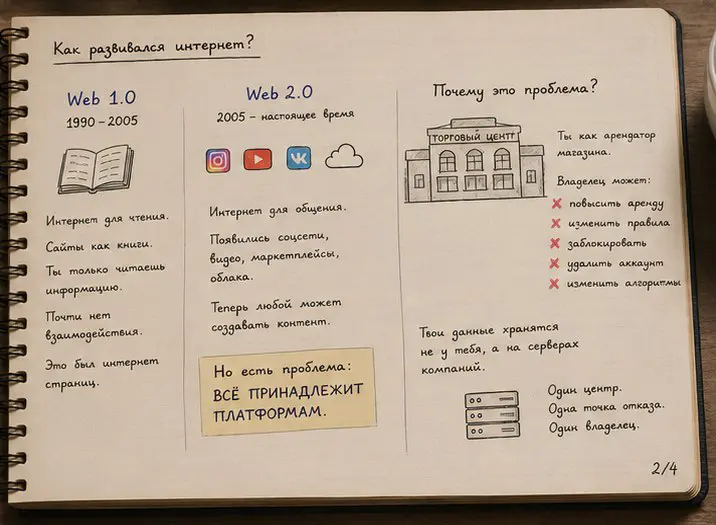 Как развивался интернет?
Web 1.0
1990 – 2005
Интернет для чтения.
Сайты как книги.
Ты только читаешь
информацию.
Почти нет
взаимодействия.
Это был интернет
страниц.
Web 2.0
2005 – настоящее время
Интернет для общения.
Появились соцсети,
видео, маркетплейсы,
облака.
Теперь любой может
создавать контент.
Но есть проблема:
ВСЁ ПРИНАДЛЕЖИТ
ПЛАТФОРМАМ.
Почему это проблема?
ТОРГОВЫЙ ЦЕНТР
Ты как арендатор
магазина.
Владелец может:
повысить аренду
изменить правила
заблокировать
удалить аккаунт
изменить алгоритмы
Твои данные хранятся
не у тебя, а на серверах
компаний.
Один центр.
Одна точка отказа.
Один владелец.
2/4